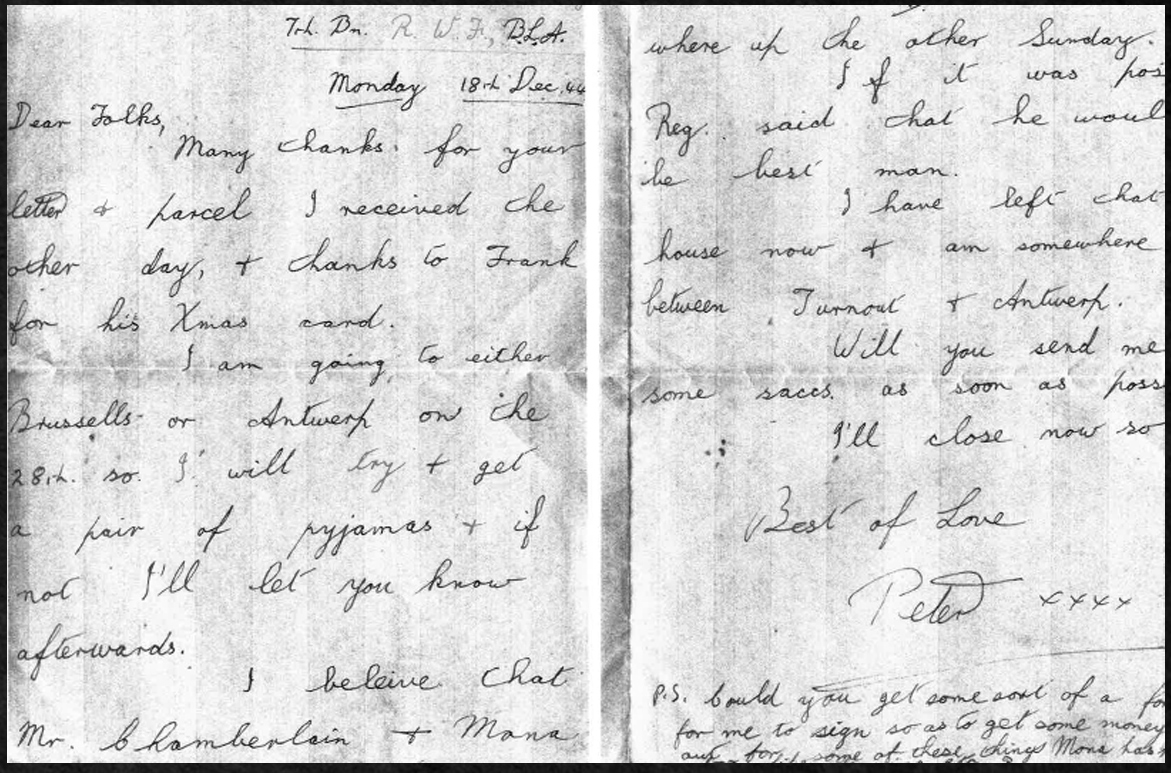 7th. Bn. R. W. F., B.L.A.
Monday 18th Dec. 44
Dear Folks,
Many thanks for your
letter & parcel I received the
other day, & thanks to Frank
for his Xmas card.
I am going to either
Brussells or Antwerp on the
28th. so I will try & get
a pair of pyjamas & if
not I'll let you know
afterwards.
I beleive that
Mr. Chamberlain & Mona
where up the other Sunday.
If it was pos
Reg. said that he woul
be best man.
I have left that
house now & am somewhere
between Turnout & Antwerp.
Will you send me
some saccs. as soon as poss
I'll close now so
Best of Love
Peter xxxx
P.S. Could you get some sort of a for
for me to sign so as to get some money
some of these things Mona has